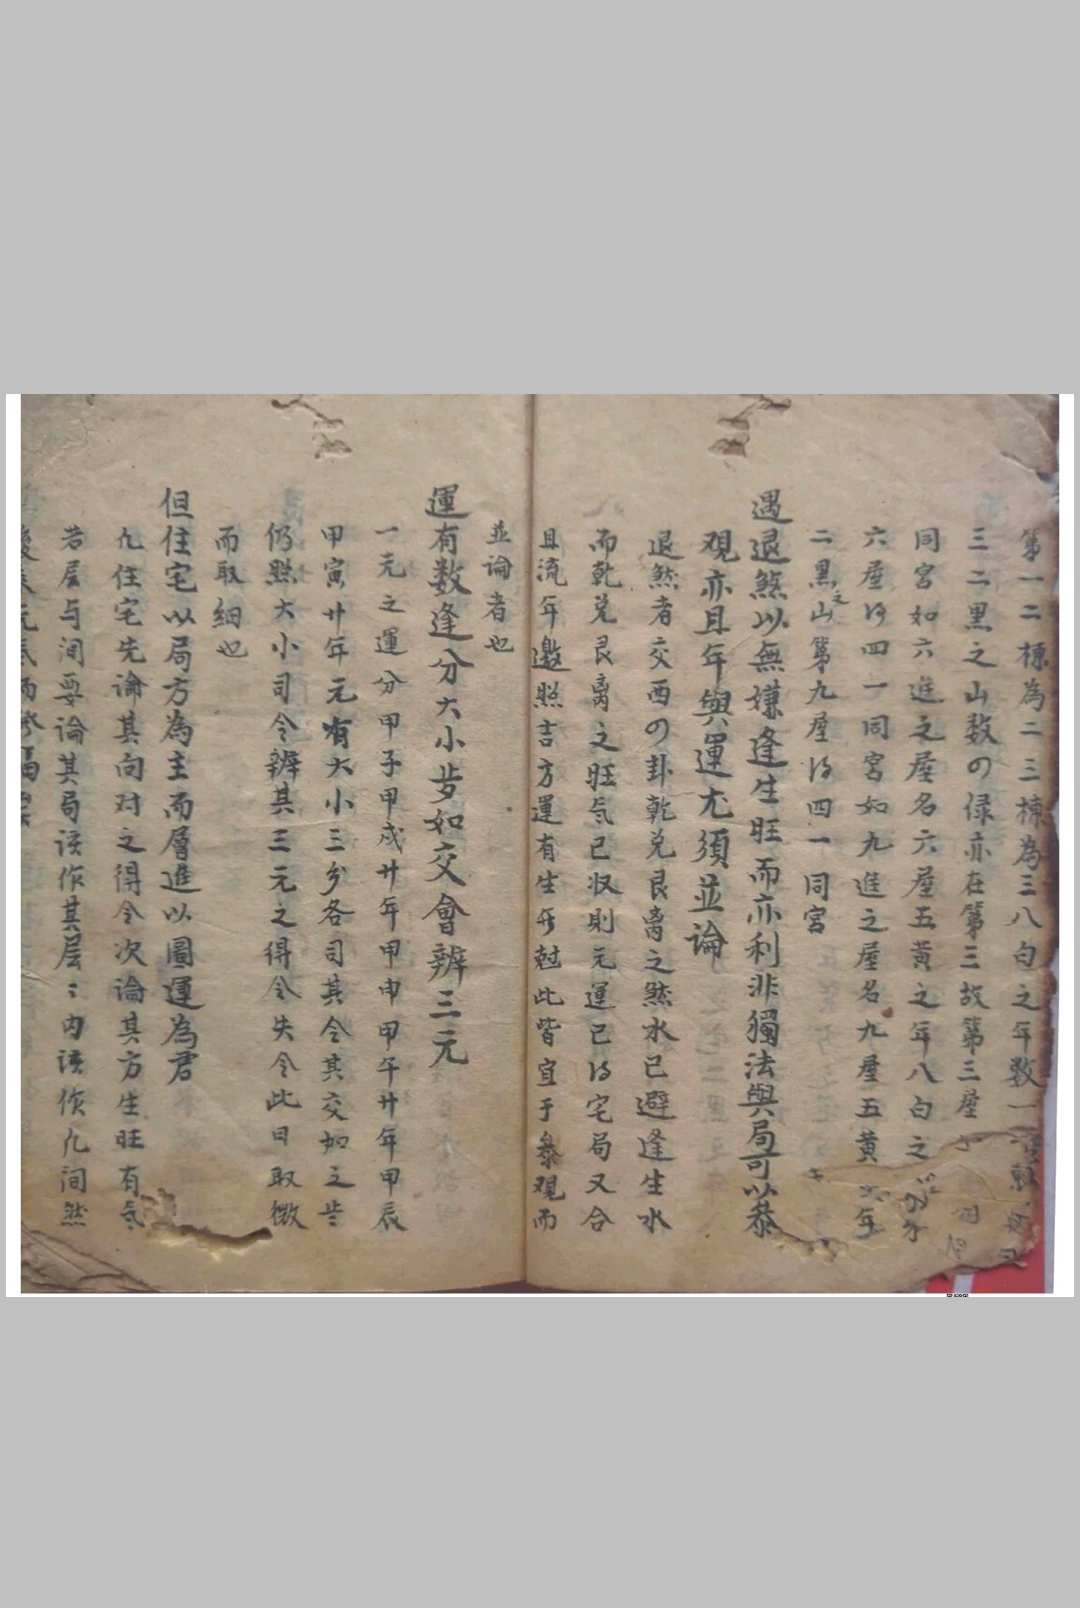 第一二棟為二三棟為三八白之年数一
三二黒之山数の緑亦在第三故第三層
同宮如六進之層名六層五黄之年八白之
六層得四一同宮如九進之層名九層五黄
二黒之山第九層得四一同宮
遇退煞以無嫌逢生旺而亦利非獨法與局可以叅
观亦且年與運尤須並論
退煞者交西の卦乾兑艮离之煞水已避逢生水
而乾兑艮离之旺氣已收則元運已得宅局又合
且流年邀照吉方運有生無尅此皆宜于叅观而
並論者也
運有数逢分大小歩如交會辨三元
一元之運分甲子甲戌廿年甲申甲午廿年甲辰
甲寅廿年元有大小三分各司其令其交如之些
仍照大小司令辨其三元之得令失令此日取微
而取細也
但住宅以局方為主而層進以圖運為君
凢住宅先論其向对之得令次論其方生旺有氣
若层与间要論其局该作其层〻内该作凢间然